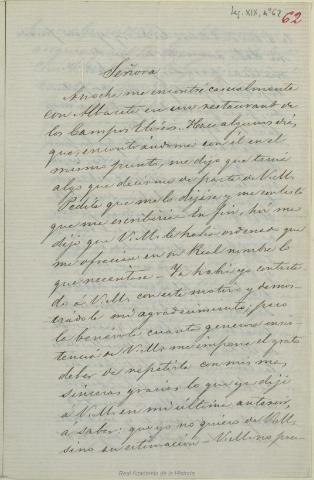 Leg. XIX, nº 62
62
Señora
Anoche me encontré casualmente
con Albacete en un restaurant de
los Campos Elíseos. Hace algunos días,
que, encontrándome con él en el
mismo punto, me dijo que tenía
algo que decirme de parte de V.M.
Pedíle que me lo dijese y me contestó
que me escribiría. En fin, hoy me
dijo que V.M. le había ordenado que
me ofreciera en su Real nombre lo
que necesitase. Ya había yo contesta-
do a V.M. con este motivo y demos-
trádole mi agradecimiento; pero
la benévola cuanto generosa insis-
tencia de V.M. me impone el grato
deber de repetirle con mis más
sinceras gracias lo que ya dije
a V.M. en mi última anterior,
á saber: que yo no quiero de V.M.
sino su estimación. V.M. no pue-
Real Academia de la Historia